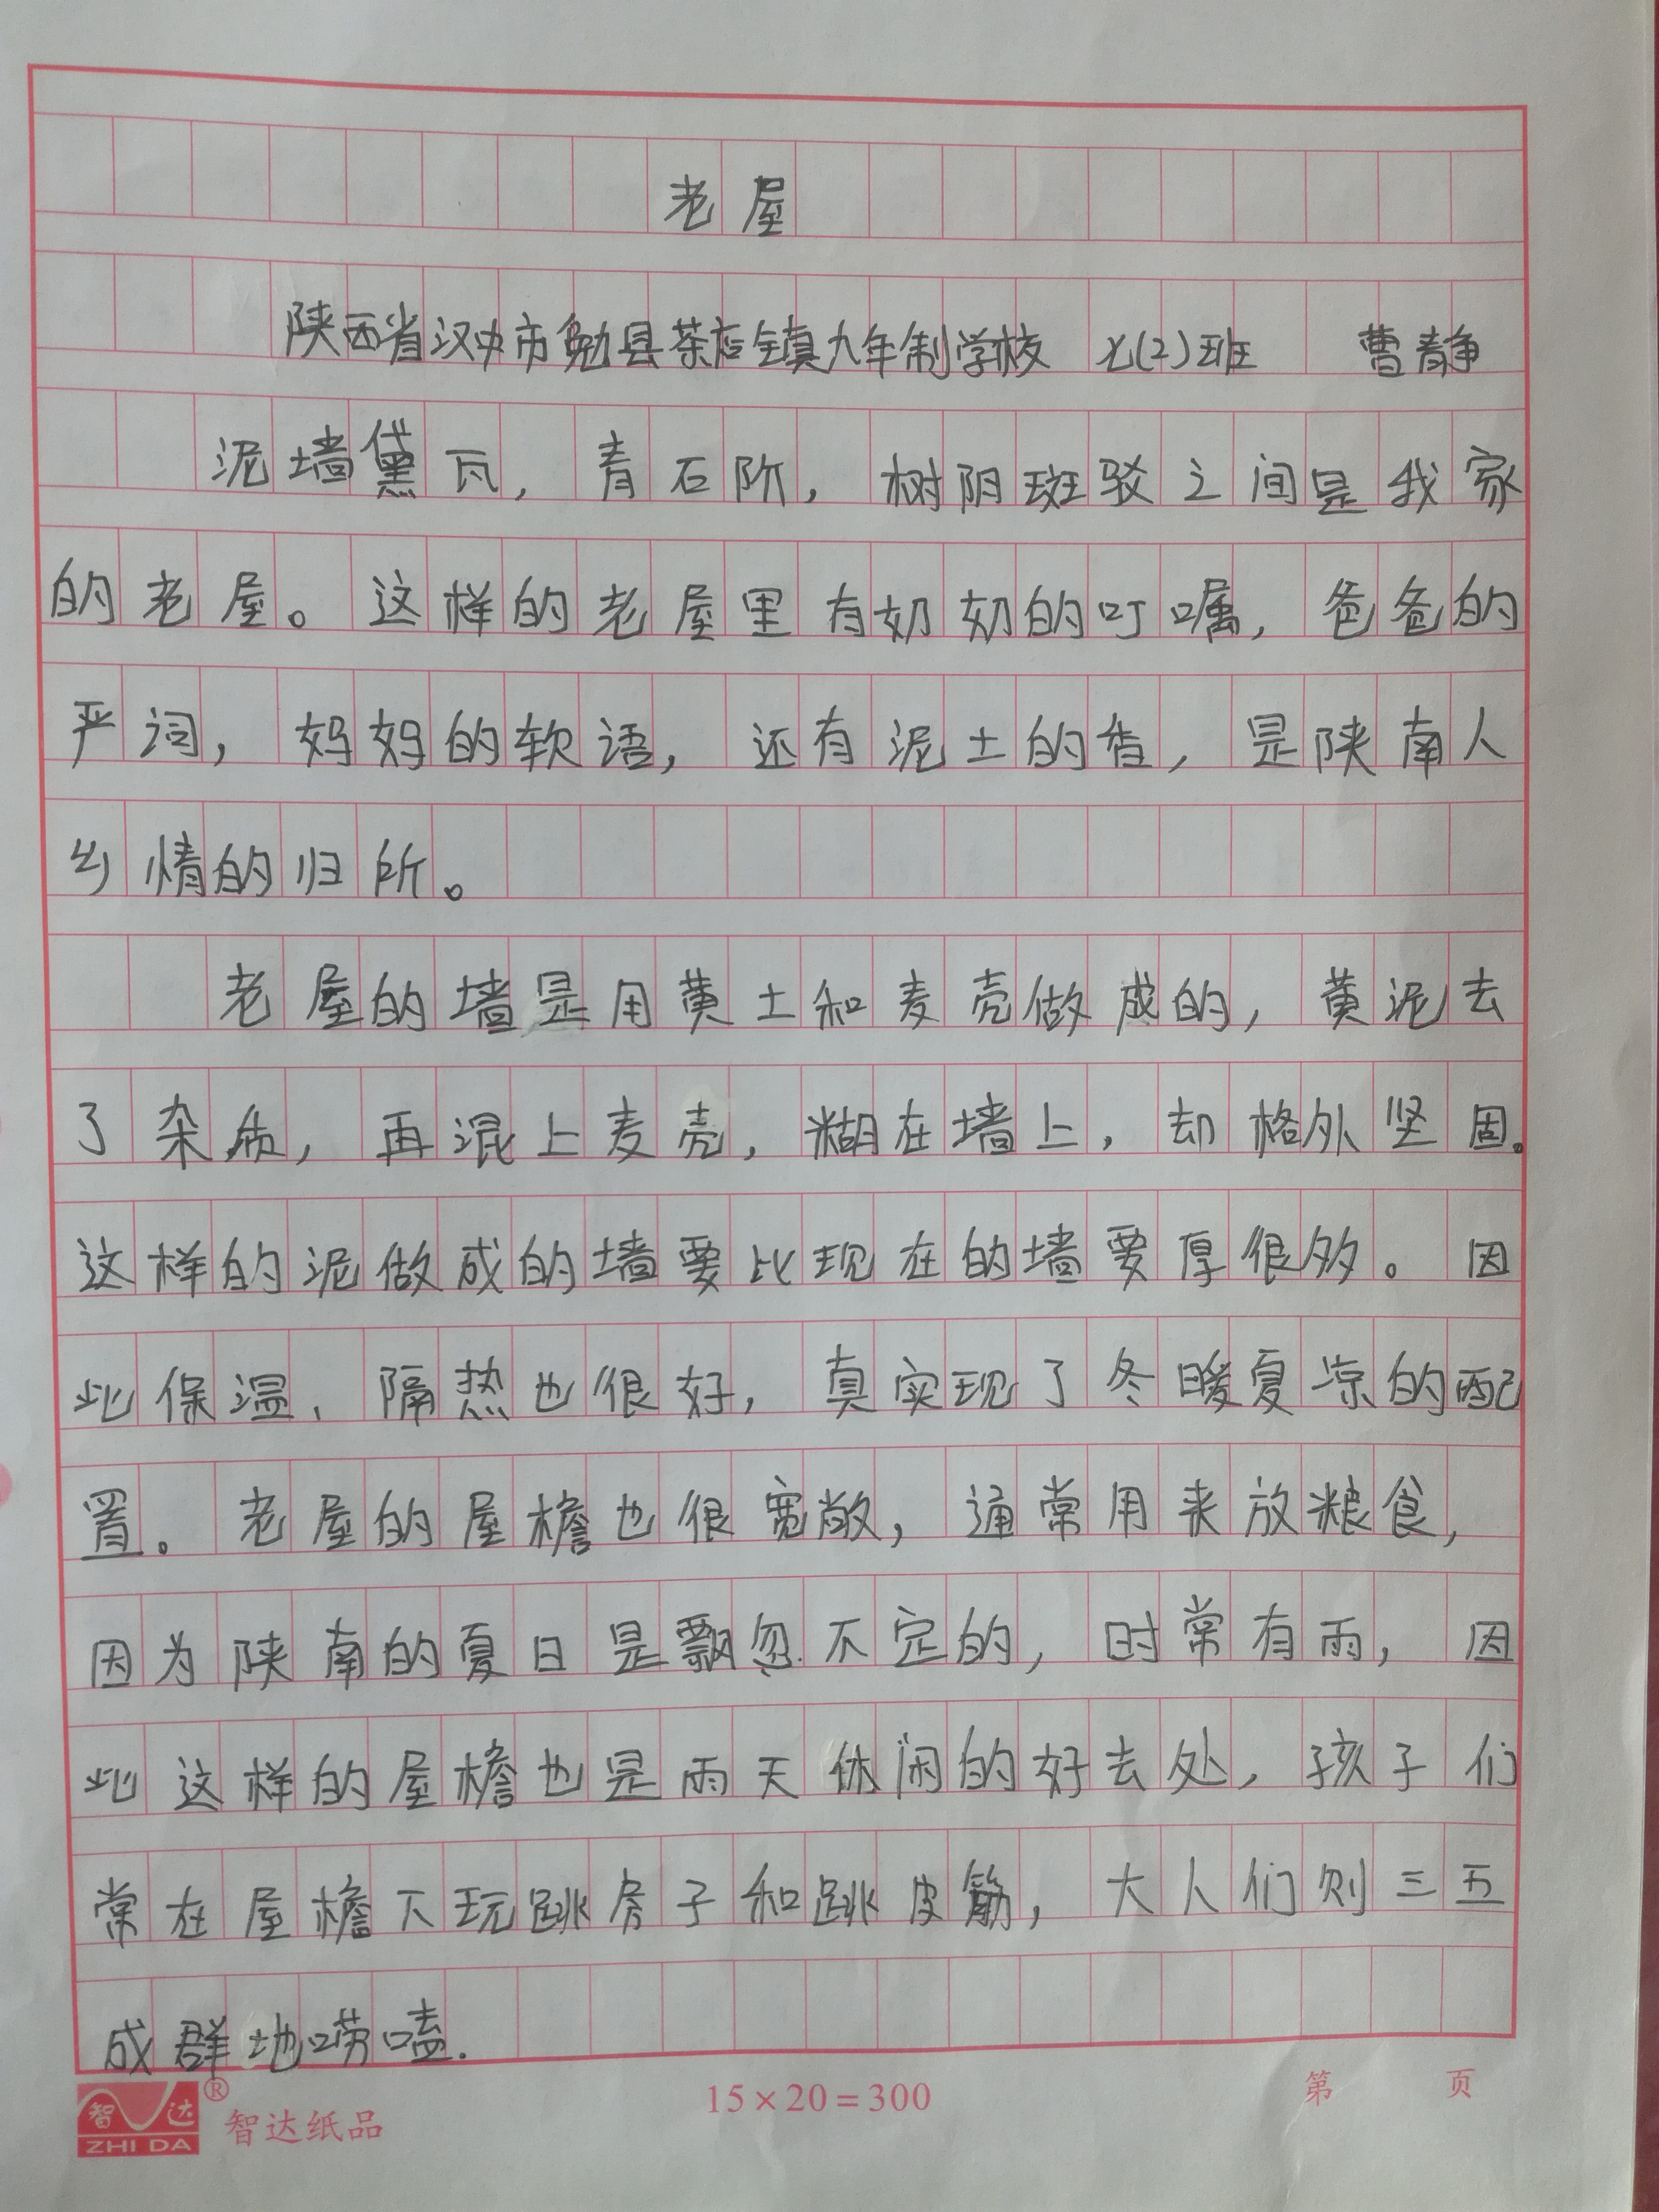 老屋
陕西省汉中市勉县茶店镇九年制学校 七(2)班 曹静
泥墙黛瓦，青石阶，树阴斑驳之间是我家
的老屋。这样的老屋里有奶奶的叮嘱，爸爸的
严词，妈妈的软语，还有泥土的香，是陕南人
乡情的归所。
老屋的墙是用黄土和麦壳做成的，黄泥去
了杂质，再混上麦壳，糊在墙上，却格外坚固。
这样的泥做成的墙要比现在的墙要厚很多。因
此保温、隔热也很好，真实现了冬暖夏凉的配
置。老屋的屋檐也很宽敞，通常用来放粮食，
因为陕南的夏日是飘忽不定的，时常有雨，因
此这样的屋檐也是雨天休闲的好去处，孩子们
常在屋檐下玩跳房子和跳皮筋，大人们则三五
成群地唠嗑.
智达
®
ZHI DA
智达纸品
15×20=300
第 页